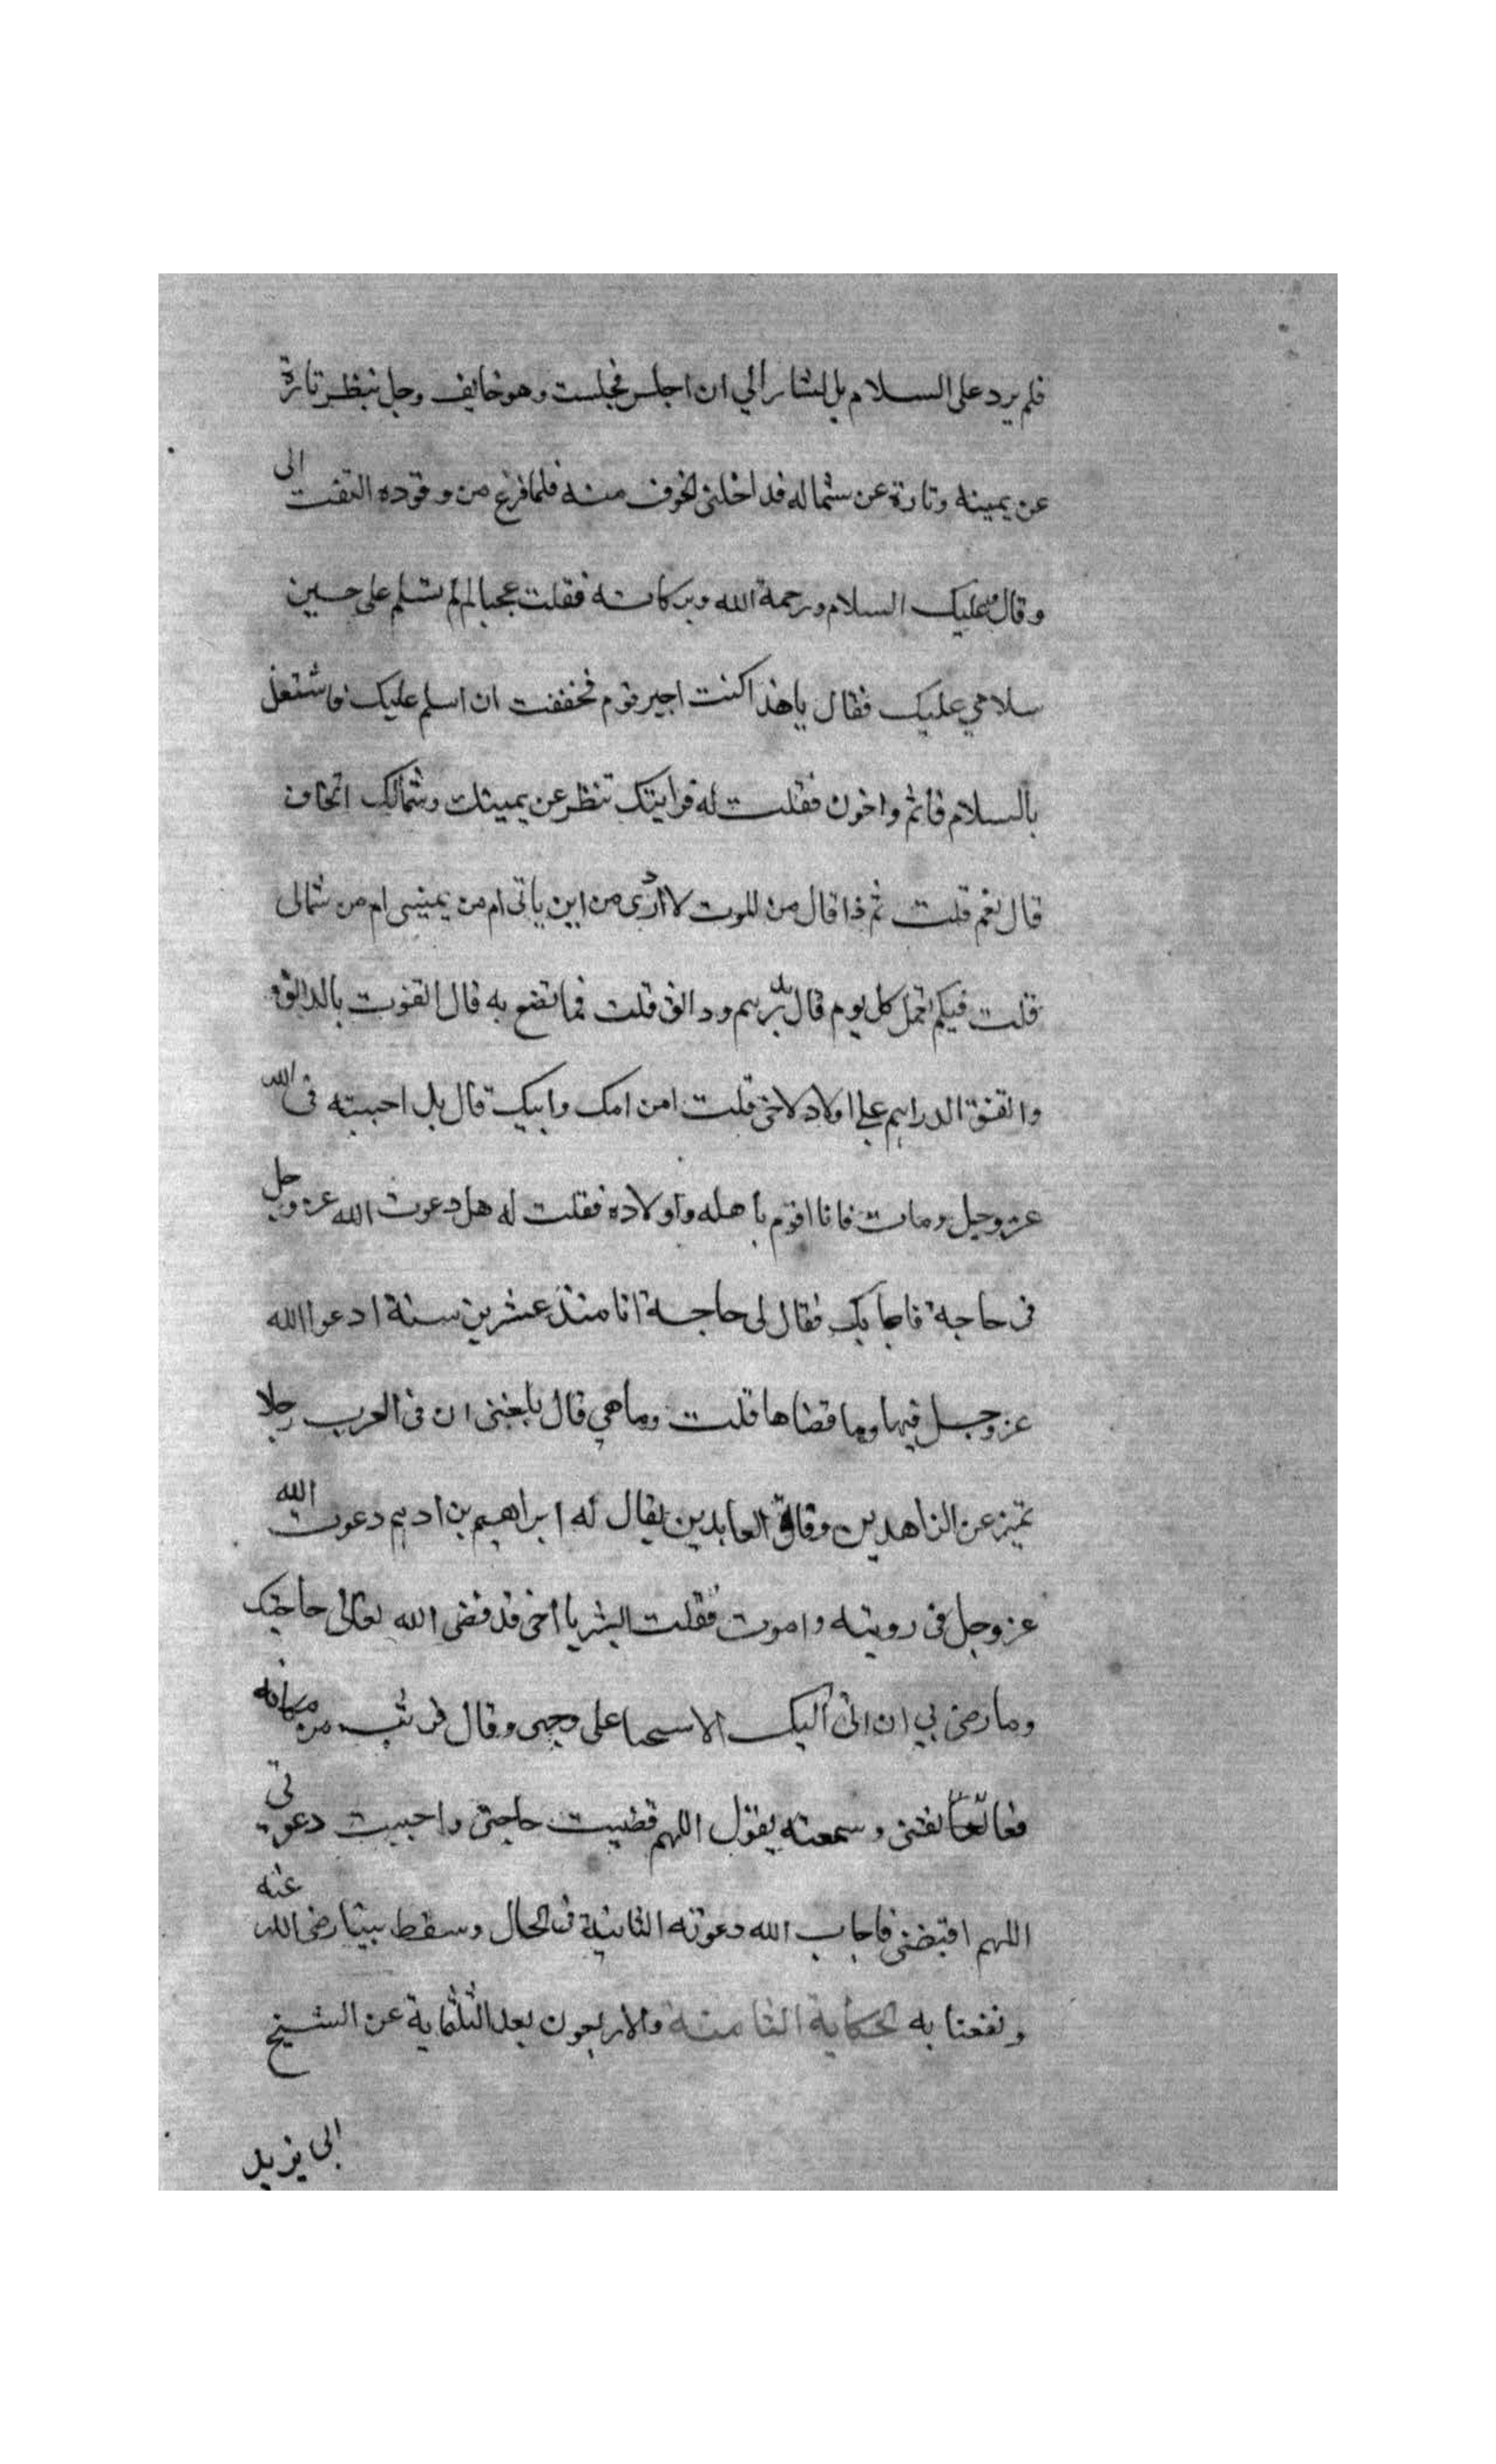 فلم يرد على السلام بل اشار الي ان اجلس فجلست وهو خايف وجل ينظر تارة
عن يمينه وتارة عن شماله فداخلني الخوف منه فلما فرغ من وقوده التفت الى
وقال وعليك السلام ورحمة الله وبركاته فقلت عجبا لم لم تسلم على حسين
سلامي عليك فقال ياهذا كنت اجير قوم فخففت ان اسلم عليك فاشتغل
بالسلام فاثم واخون فقلت له فرايتك تنظر عن يمينك وشمالك اتخاف
قال نعم قلت ثم ذا قال من الموت لا ادرى من اين ياتى ام من يمينى ام من شمالى
قلت فبكم تعمل كل يوم قال بدرهم ودانق قلت فما تضع به قال اتقوت بالدانق و
وانفق الدراهم على اولاد لاخى قلت امن امك وابيك قال بل احببته فى الله
عز وجل ومات فانا اقوم باهله واولاده فقلت له هل دعوت الله عز وجل
فى حاجة فاجابك فقال لى حاجة انا منذ عشرين سنة ادعوا الله
عز وجل فيها وما قضاها قلت وماهي قال بلغنى ان فى العرب رجلا
تميز عن الزاهدين وفاق العابدين يقال له ابراهيم بن ادهم دعوت الله
عز وجل فى رويته واموت فقلت ابشر يا اخى قد قضى الله تعالى حاجتك
وما رضى بي ان اتى اليك الا سحبا على وجهى وقال فوثب من مكانه
فعانقنى وسمعته يقول اللهم قضيت حاجتى واجبت دعوتى
اللهم اقبضنى فاجاب الله دعوته الثانية فى الحال وسقط ميتا رضى الله عنه
ونفعنا به الحكاية الثامنة والاربعون بعد الثلثماية عن الشيخ
ابى يزيد